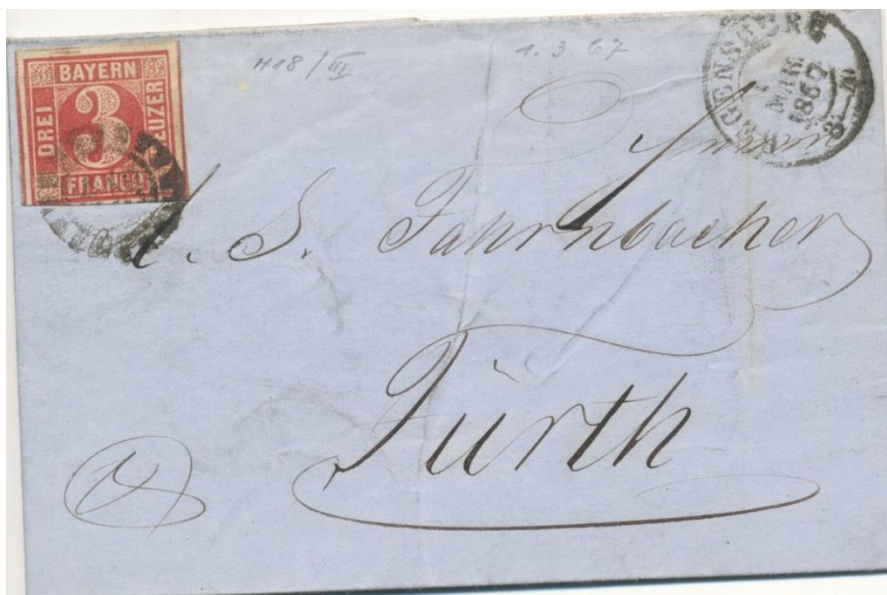 BAYERN
DREI
3
KREUZER
FRANCO
418/III
1. 3. 67
REGENSBURG
MÄR
1867
S. Fahrnbacher
Fürth